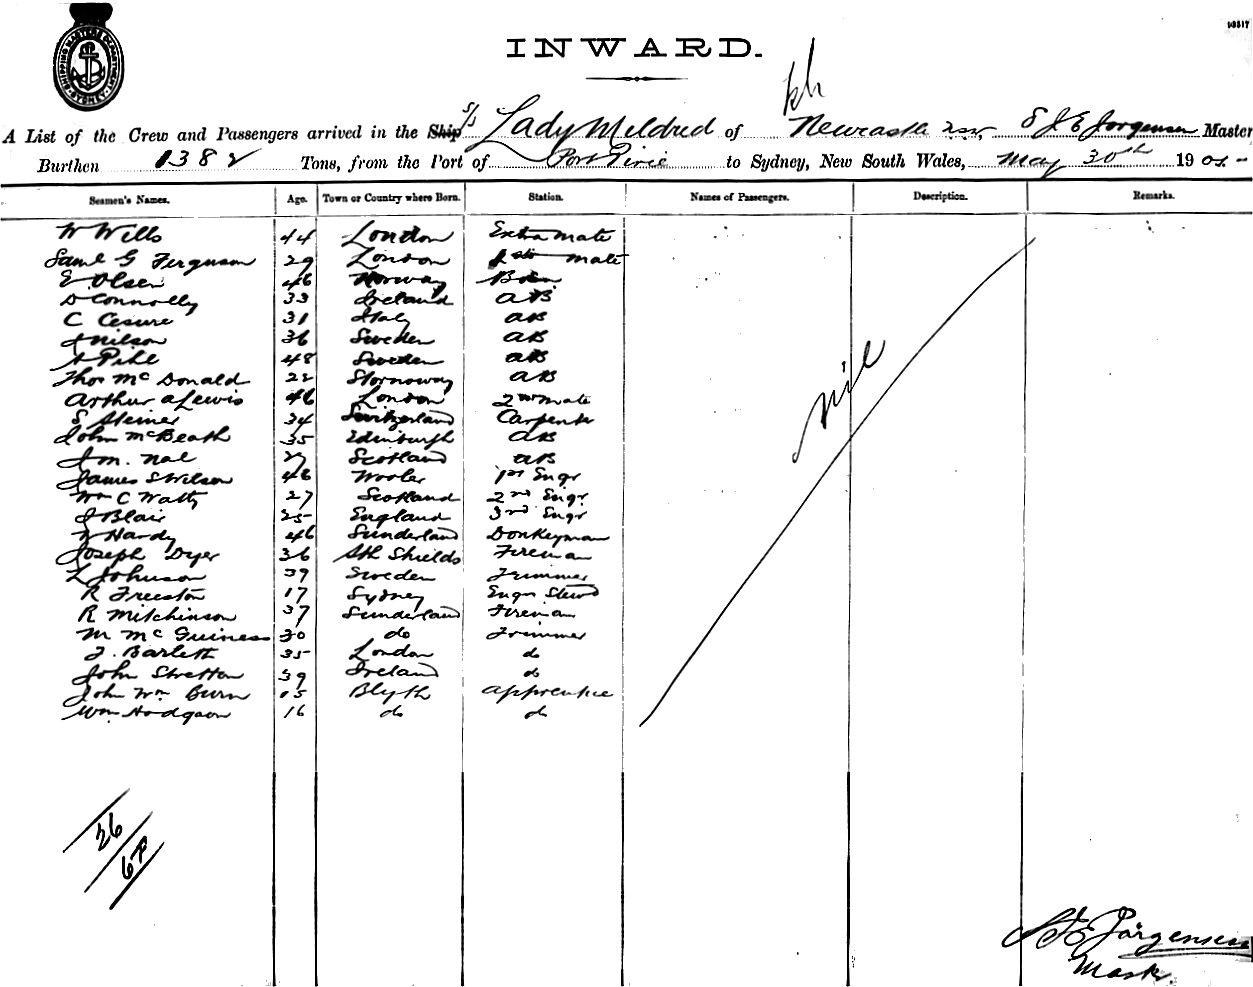 SHIPPING MASTERS DEPARTMENT SYDNEY
INWARD.
A List of the Crew and Passengers arrived in the Ship S/S Lady Mildred of Newcastle NSW, S J E Jorgensen Master
Burthen 1382 Tons, from the Port of Port Pirie to Sydney, New South Wales, May 30th 1901
Seamen's Names. Age. Town or Country where Born. Station. Names of Passengers. Description. Remarks.
W Wills 44 London Extra mate
Saml G Ferguson 29 London 1st mate
E Olsen 46 Norway Bosn
D Connolly 33 Ireland AB
C Cesure 31 Italy AB
J Nilson 36 Sweden AB
A Pihl 48 Sweden AB
Thos McDonald 22 Stornoway AB
Arthur A Lewis 46 London 2nd mate
S Steiner 34 Switzerland Carpenter
John McBeath 35 Edinburgh AB
27 Scotland AB
James S Wilson 46 Wooler 1st Engr
Wm C Watty 27 Scotland 2nd Engr
J Blair 25 England 3rd Engr
Hardy 46 Sunderland Donkeyman
Joseph Dyer 36 Sth Shields Fireman
L Johnson 39 Sweden Trimmer
R Freeston 17 Sydney Engrs Stewd
R Mitchinson 37 Sunderland Fireman
M McGuiness 30 do Trimmer
J. Barlett 35 London do
John Stretton 39 Ireland do
John Wm Burn 15 Blyth apprentice
Wm Hodgson 16 do do
nil
26
S J E Jörgensen
Mastr.